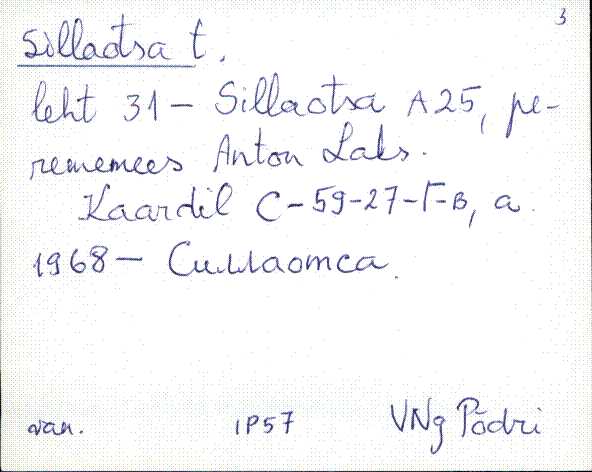 3
Sillaotsa t.
leht 31 – Sillaotsa A25, pe-
remees Anton Laks.
Kaardil C-59-27-Г-в, a.
1968 – Силлаотса.
van.
IP57
VNg Põdri